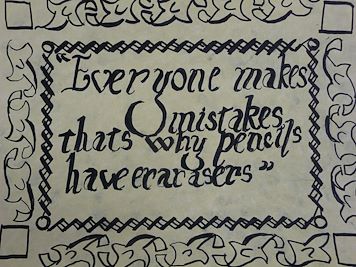 "Everyone makes
mistakes
thats why pencils
have erarasers"